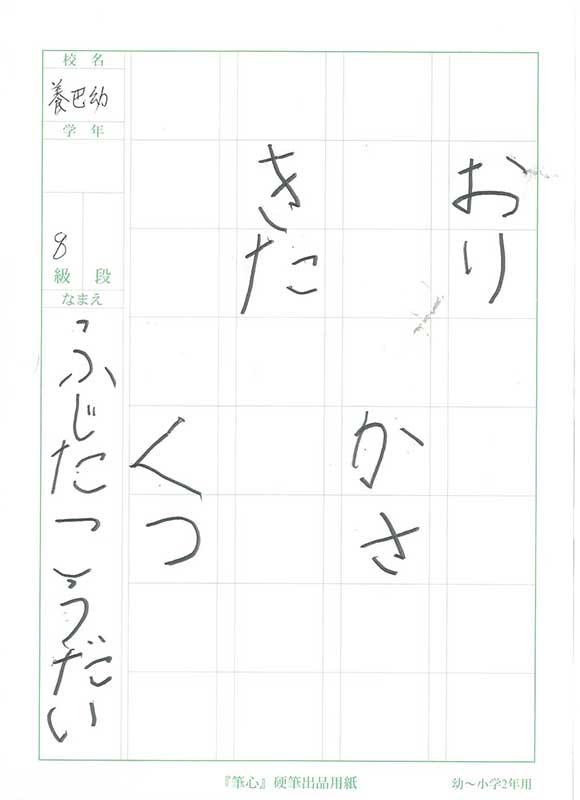 おり
かさ
きた
くつ
校名
養巴幼
学年
8
級 段
なまえ
ふじたこうだい
『筆心』硬筆出品用紙
幼〜小学2年用